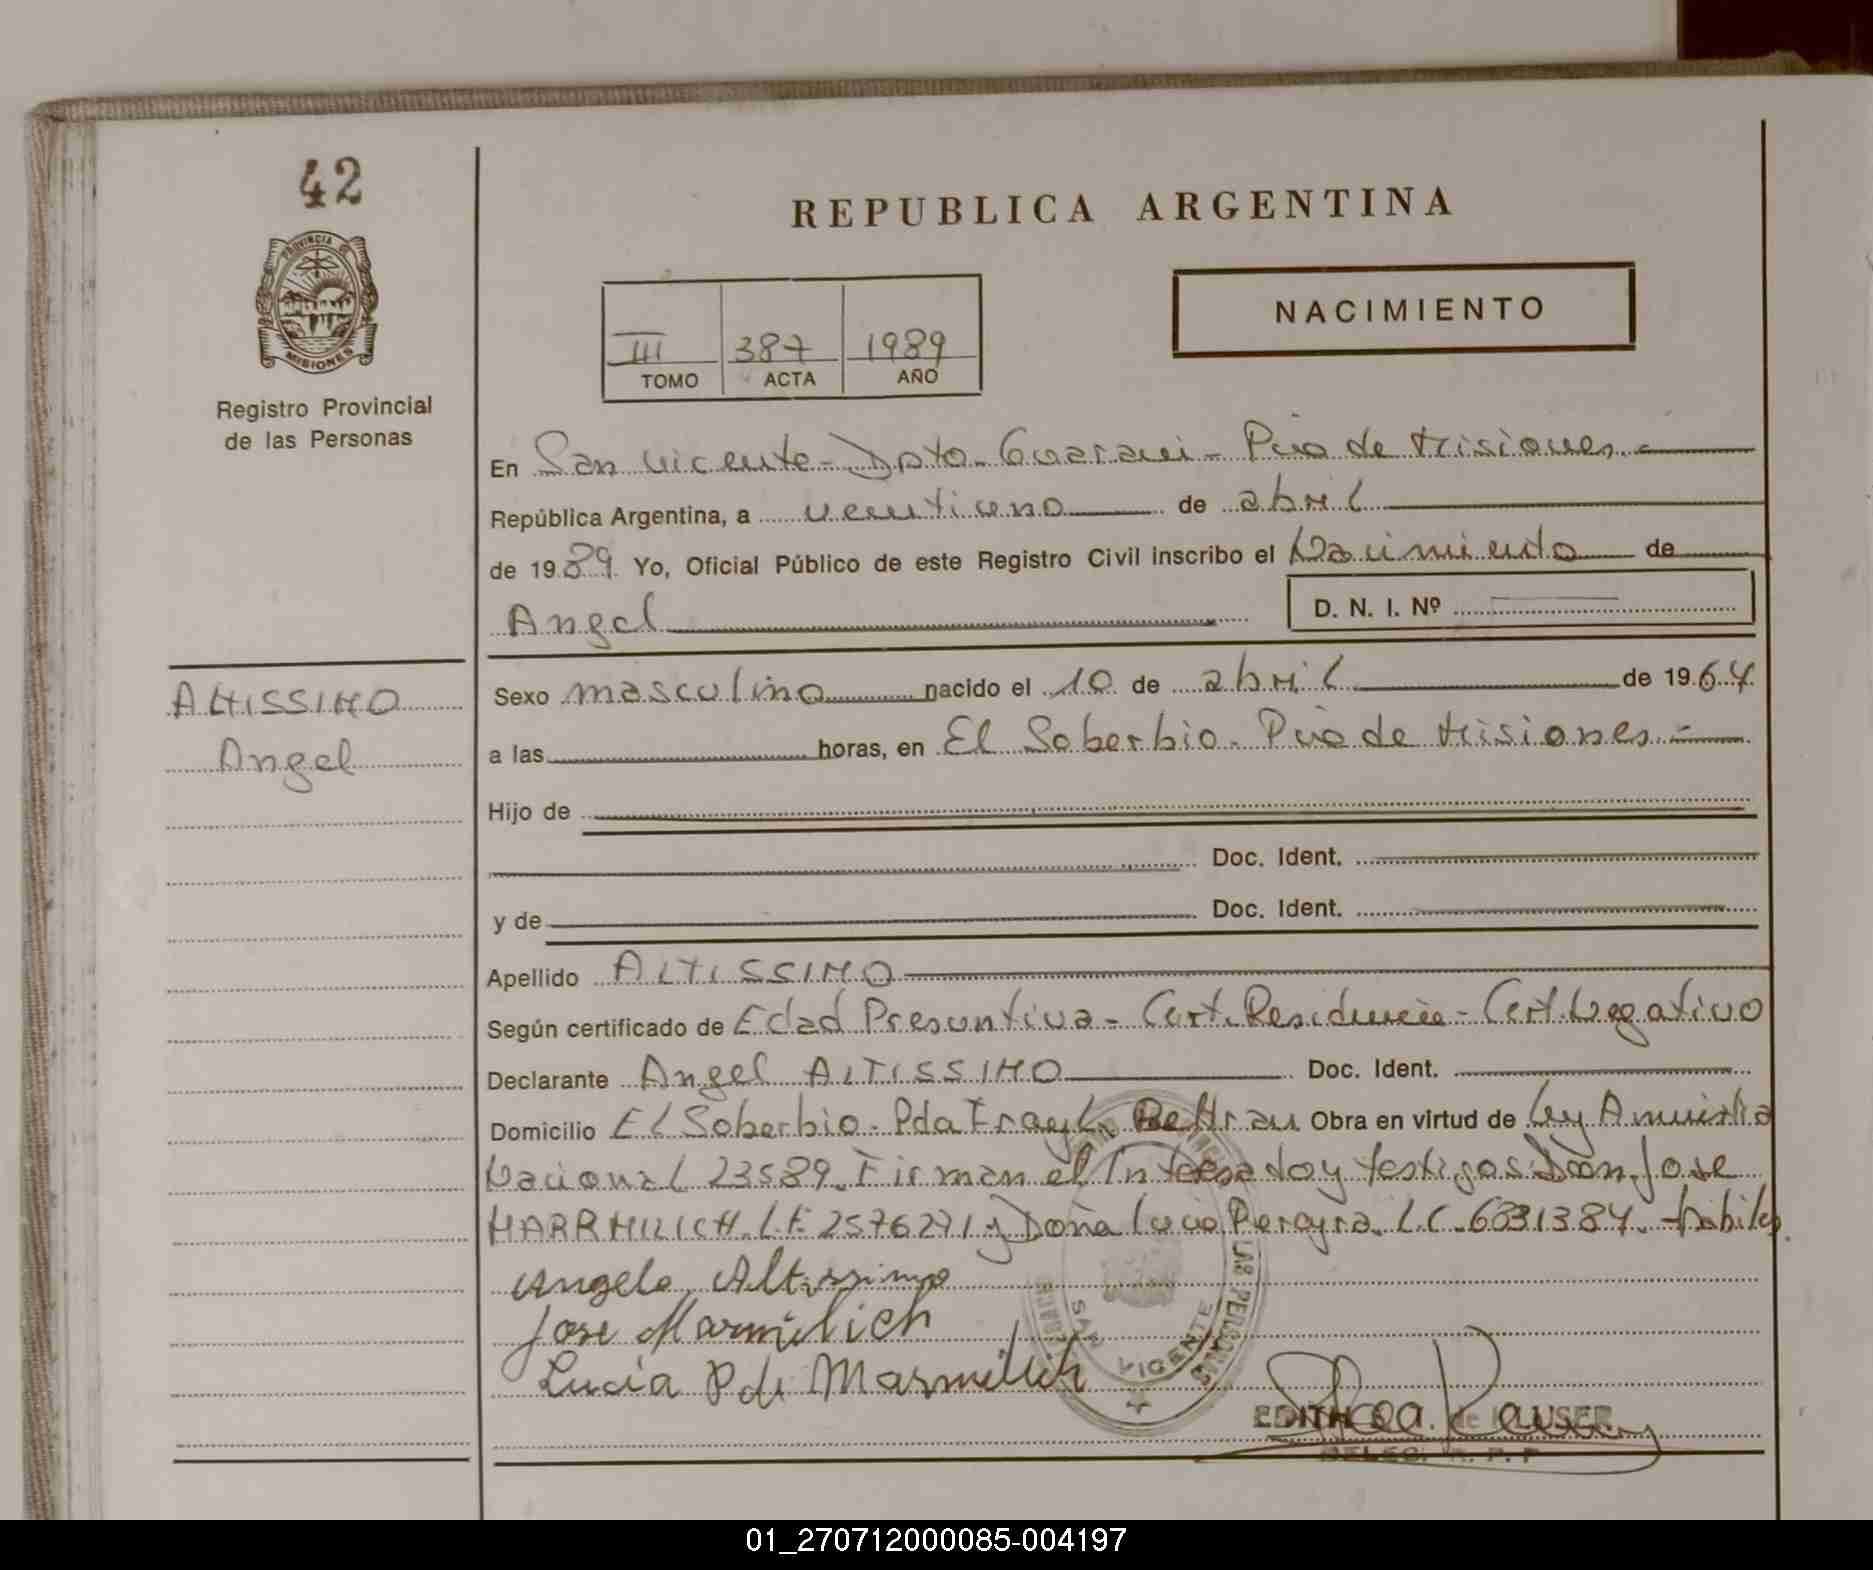 42
REPUBLICA ARGENTINA
PROVINCIA
MISIONES
NACIMIENTO
III 387 1989
TOMO ACTA AÑO
Registro Provincial
de las Personas
En San Vicente - Dpto. Guarani - Pcia de Misiones.=
República Argentina, a veintiuno de abril
de 1989. Yo, Oficial Público de este Registro Civil inscribo el Nacimiento de
Angel
D. N. I. Nº
ALTISSIMO
Angel
Sexo masculino nacido el 10 de abril de 1964
a las horas, en El Soberbio. Pcia de Misiones.=
Hijo de
Doc. Ident.
y de Doc. Ident.
Apellido ALTISSIMO
Según certificado de Edad Presuntiva - Cert. Residencia - Cert. Negativo
Declarante Angel ALTISSIMO Doc. Ident.
Domicilio El Soberbio. Pda Fray L. Beltran Obra en virtud de Ley Amnistia
Nacional 23589. Firman el Interesado y testigos Don Jose
MARRMILICH. L.E. 2576271 y Doña Lucia Pereyra. L.C. 6831384. Habiles.
Angelo Altissimo
Jose Marmilich
Lucía P de Marmilich
LAS PERSONAS
SAN VICENTE
EDITH de KLUSER
DELEG. R. P. P
01_270712000085-004197